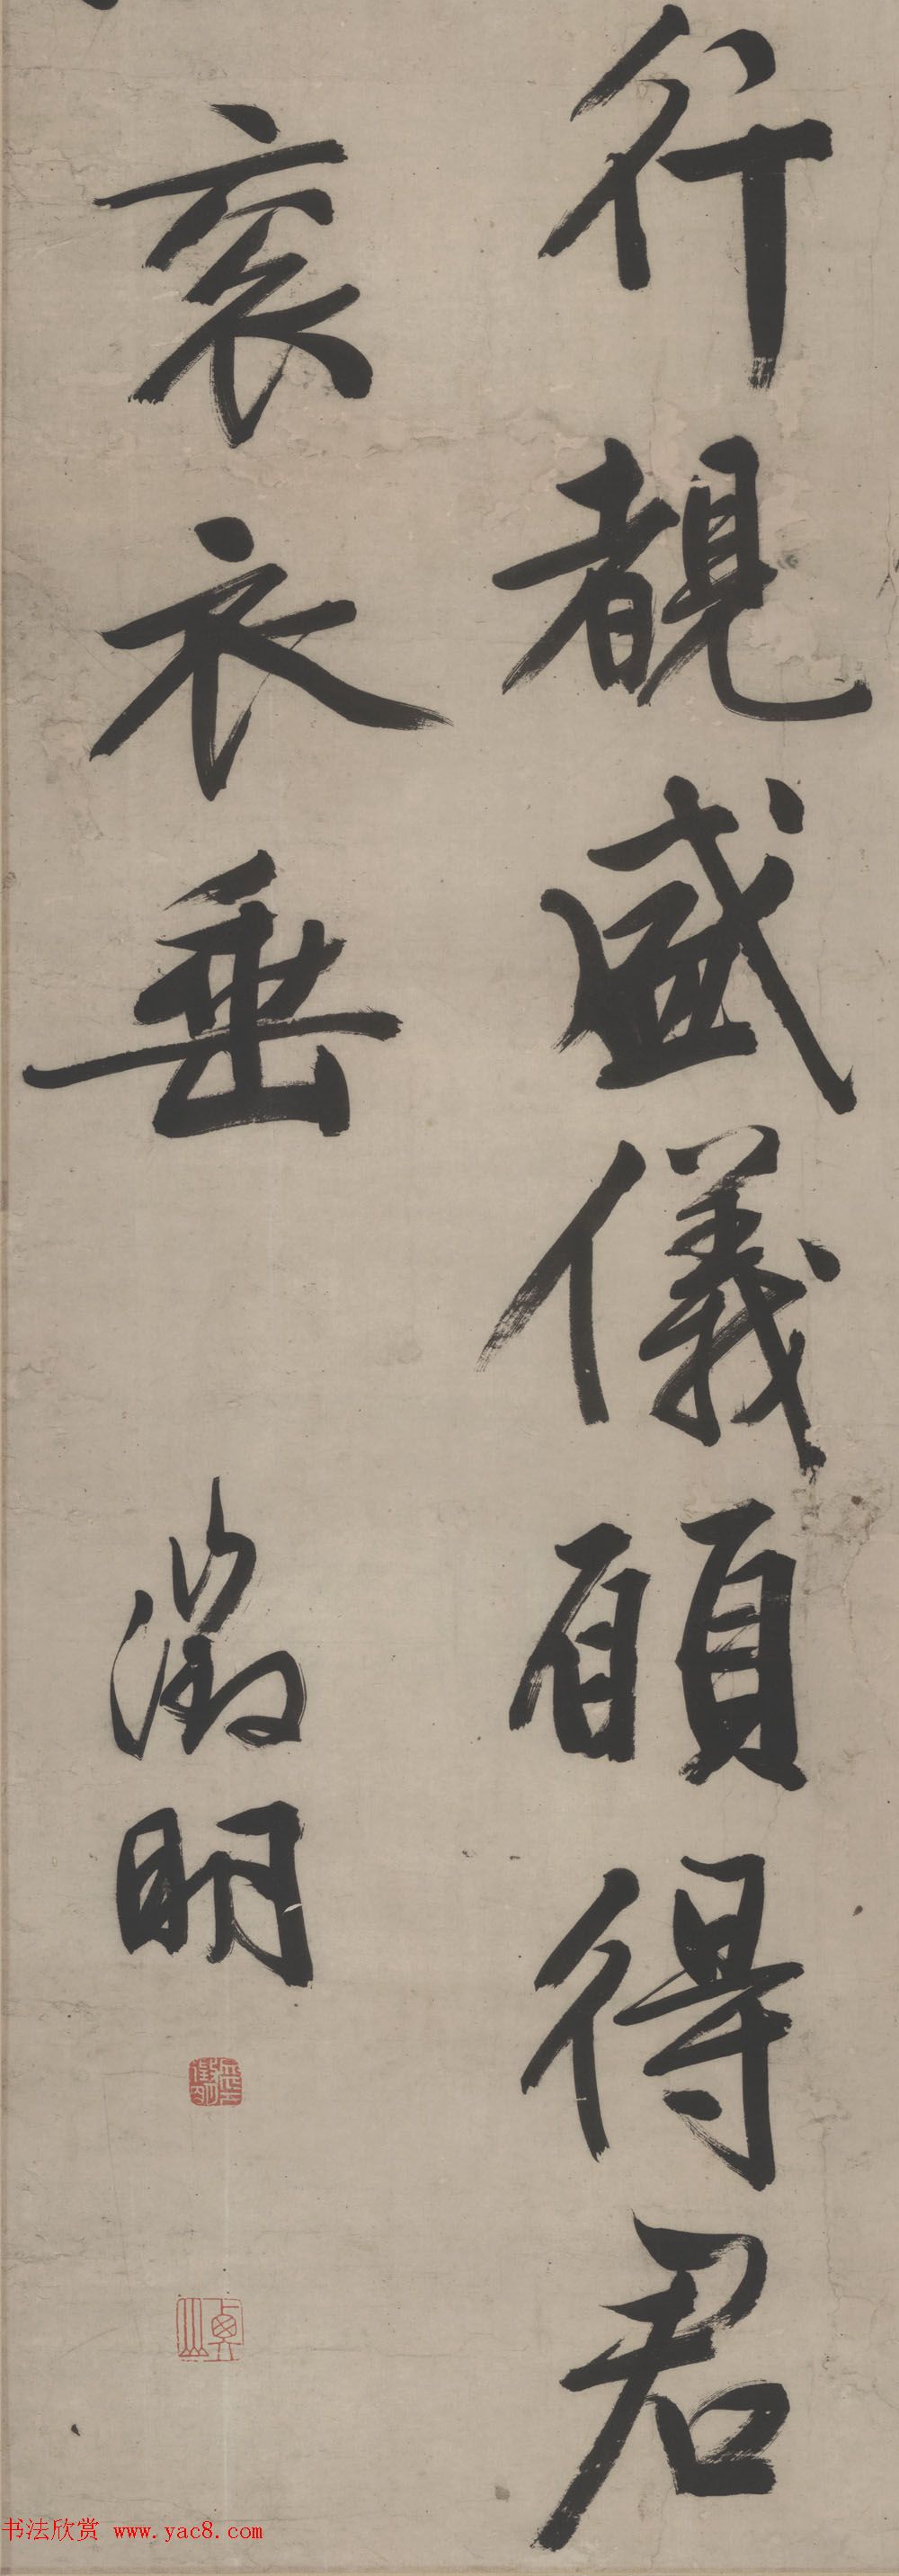 行覩盛儀願得君
衮衣垂
徵明
書法欣赏 www.yac8.com